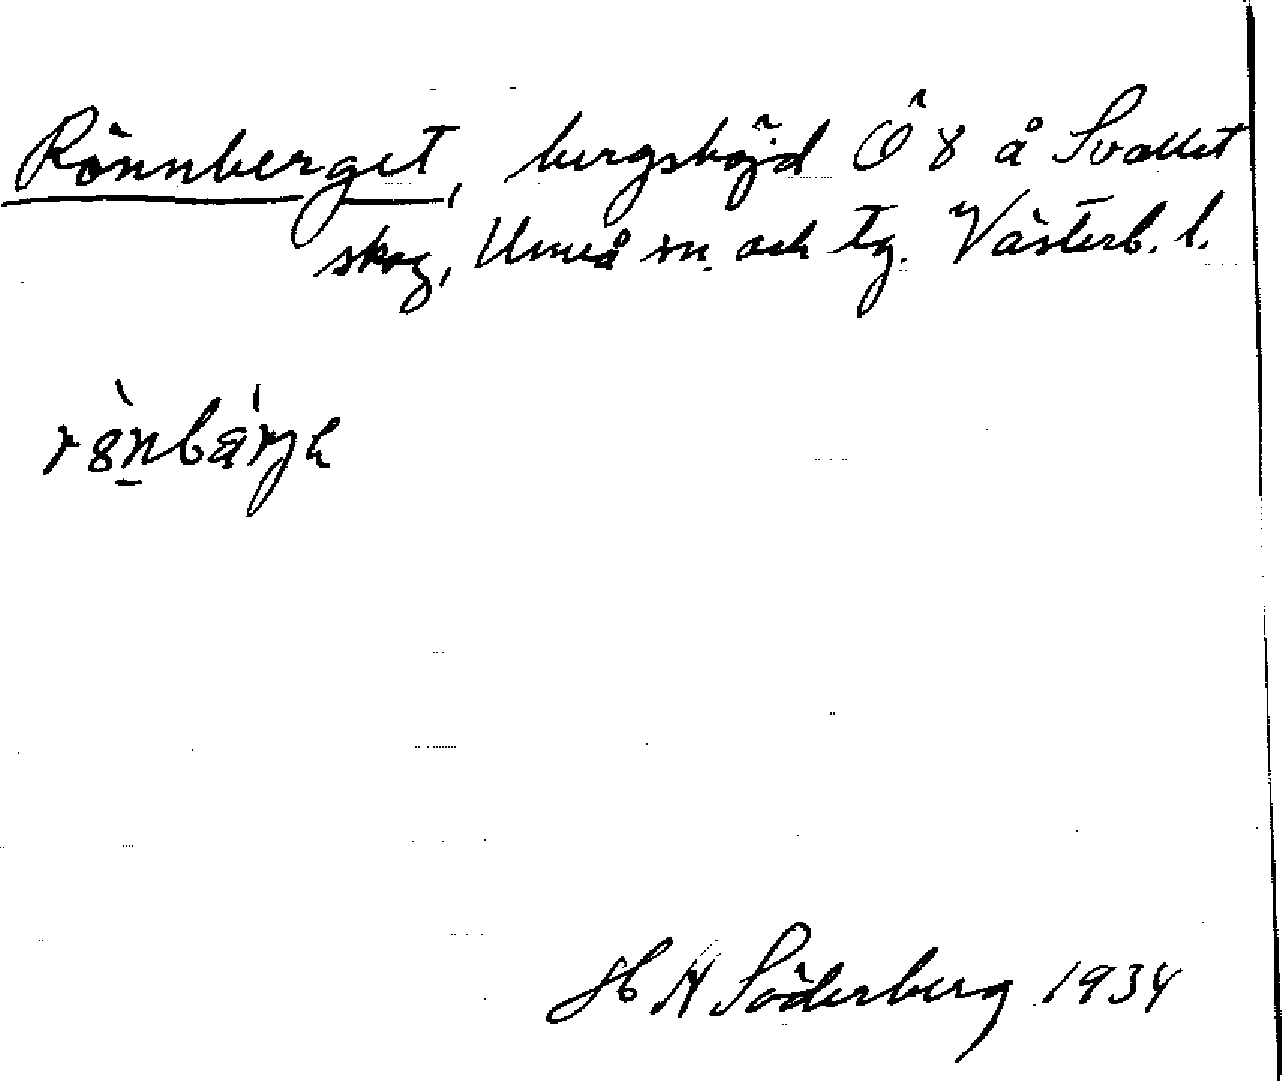 Rönnberget, bergshöjd Ö 8 å Svallet
skog, Umeå sn. och tg. Västerb. l.
H Söderberg 1934